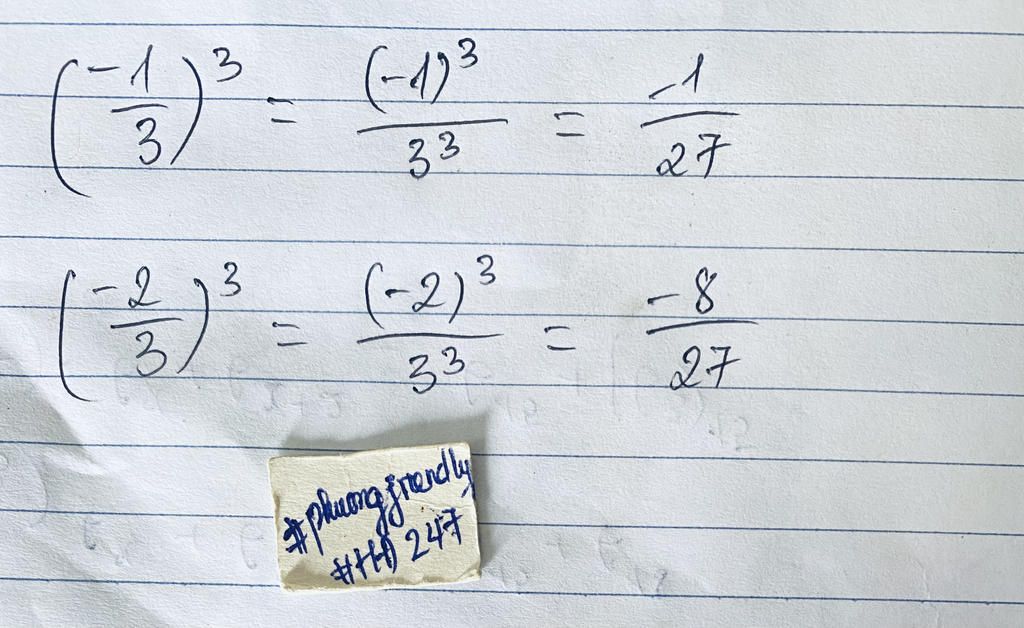 (-1/3)³ = (-1)³/3³ = -1/27
(-2/3)³ = (-2)³/3³ = -8/27
#phuongfriendly
#HĐ 247